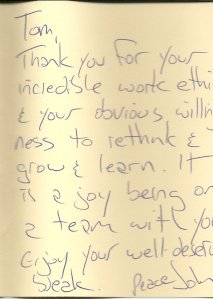 Tom,
Thank you for your
incredible work ethi
& your obvious, willin
ness to rethink &
grow & learn. It
is a joy being on
a team with you
Enjoy your well-deserv
break. Peace John